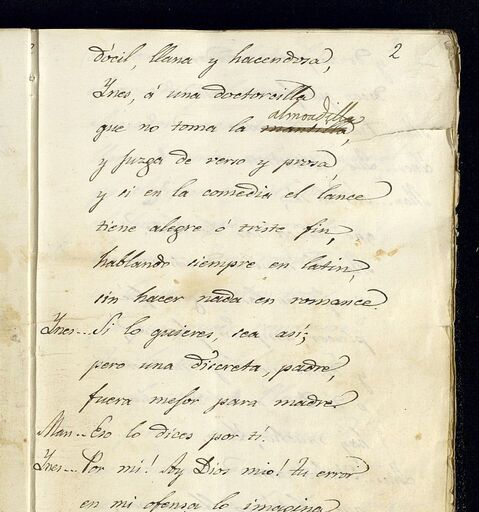 2
dócil, llana y hacendosa,
Ynes, á una doctorcilla
almoadilla
que no toma la mantilla,
y juzga de verso y prosa,
y si en la comedia el lance
tiene alegre ó triste fin,
hablando siempre en latin,
sin hacer nada en romance.
Ynes.. Si lo quieres, sea asi;
pero una discreta, padre,
fuera mejor para madre.
Man.. Eso lo dices por ti.
Ynes.. Por mi! Ay Dios mio! tu error
en mi ofensa lo imagina